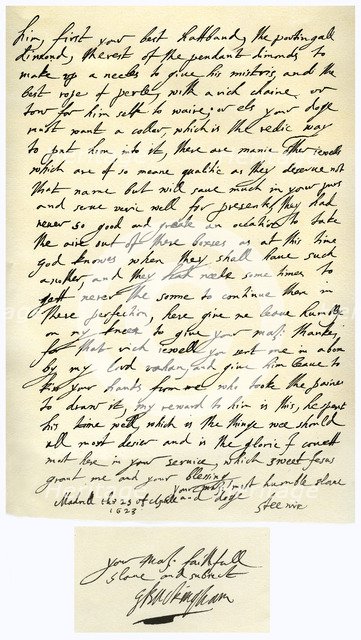 him, first your best hattband, the portingall
dimond, the rest of the pendant dimonds to
make up a necles to give his mistris, and the
best rope of perle, with a rich chaine or
tow for him self to waire, or els your doge
must want a coller, which is the redie way
to put him into it, there are manie other iewells
which are of so meane qualitie as they deserve not
that name but will save much in your purs
and serve verie well for presents, they had
never so good and greate an occation to take
the aire out of there boxses as at this time
god knowes when they shall have such
another, and they had neede some times to
gett never the sonne to continue them in
there perfection, here give me leave humblie
on my knees to give your maj: thankes
for that rich iewell you sent me in a box
by my lord vahan, and give him leave to
kis your hands from me who tooke the paines
to draw it, my reward to him is this, he spent
his time well, which is the thinge wee should
all most desier and is the glorie I covett
most here in your service, which sweet Jesus
grant me and your blessing
your maj: most humble slave
Madrill the 25 of Aprill and doge
1623 Steenie
your maj: faithfull
slave and subiect
GBuckingham